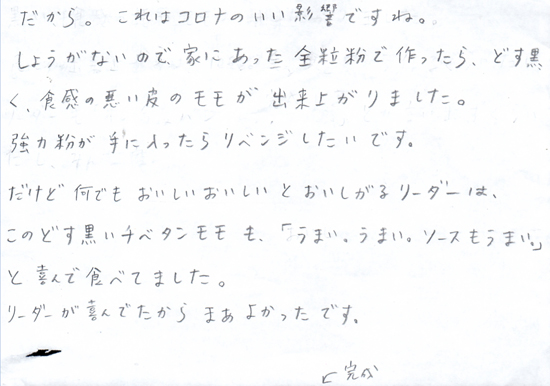 だから。これはコロナのいい影響ですね。
しょうがないので、家にあった全粒粉で作ったら、どす黒
く、食感の悪い皮のモモが出来上がりました。
強力粉が手に入ったらリベンジしたいです。
だけど何でもおいしいおいしいとおいしがるリーダーは、
このどす黒いチベタンモモも、「うまい。うまい。ソースもうまい。」
と喜んで食べてました。
リーダーが喜んでたからまぁよかったです。
完成